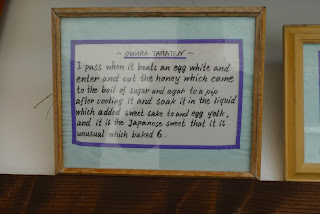 ~ OWARA TAMATEN ~
I pass when it beats an egg white and
enter and cut the honey which came
to the boil of sugar and agar to a pip
after cooling it and soak it in the liquid
which added sweet sake to and egg yolk,
and it is the Japanese sweet that it is
unusual which baked 6.